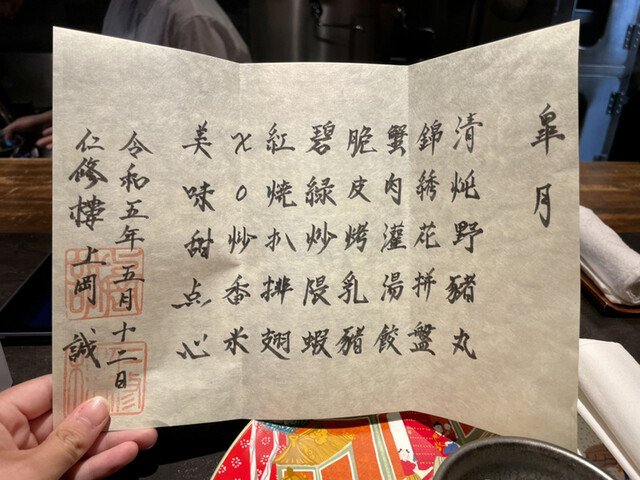 皐月
清炖野豬丸
錦綉花拼盤
蟹肉灌湯餃
脆皮烤乳豬
碧緑炒隈蝦
紅焼扒排翅
XO炒香米
美味甜点心
令和五年五月十二日
仁修樓 上岡 誠